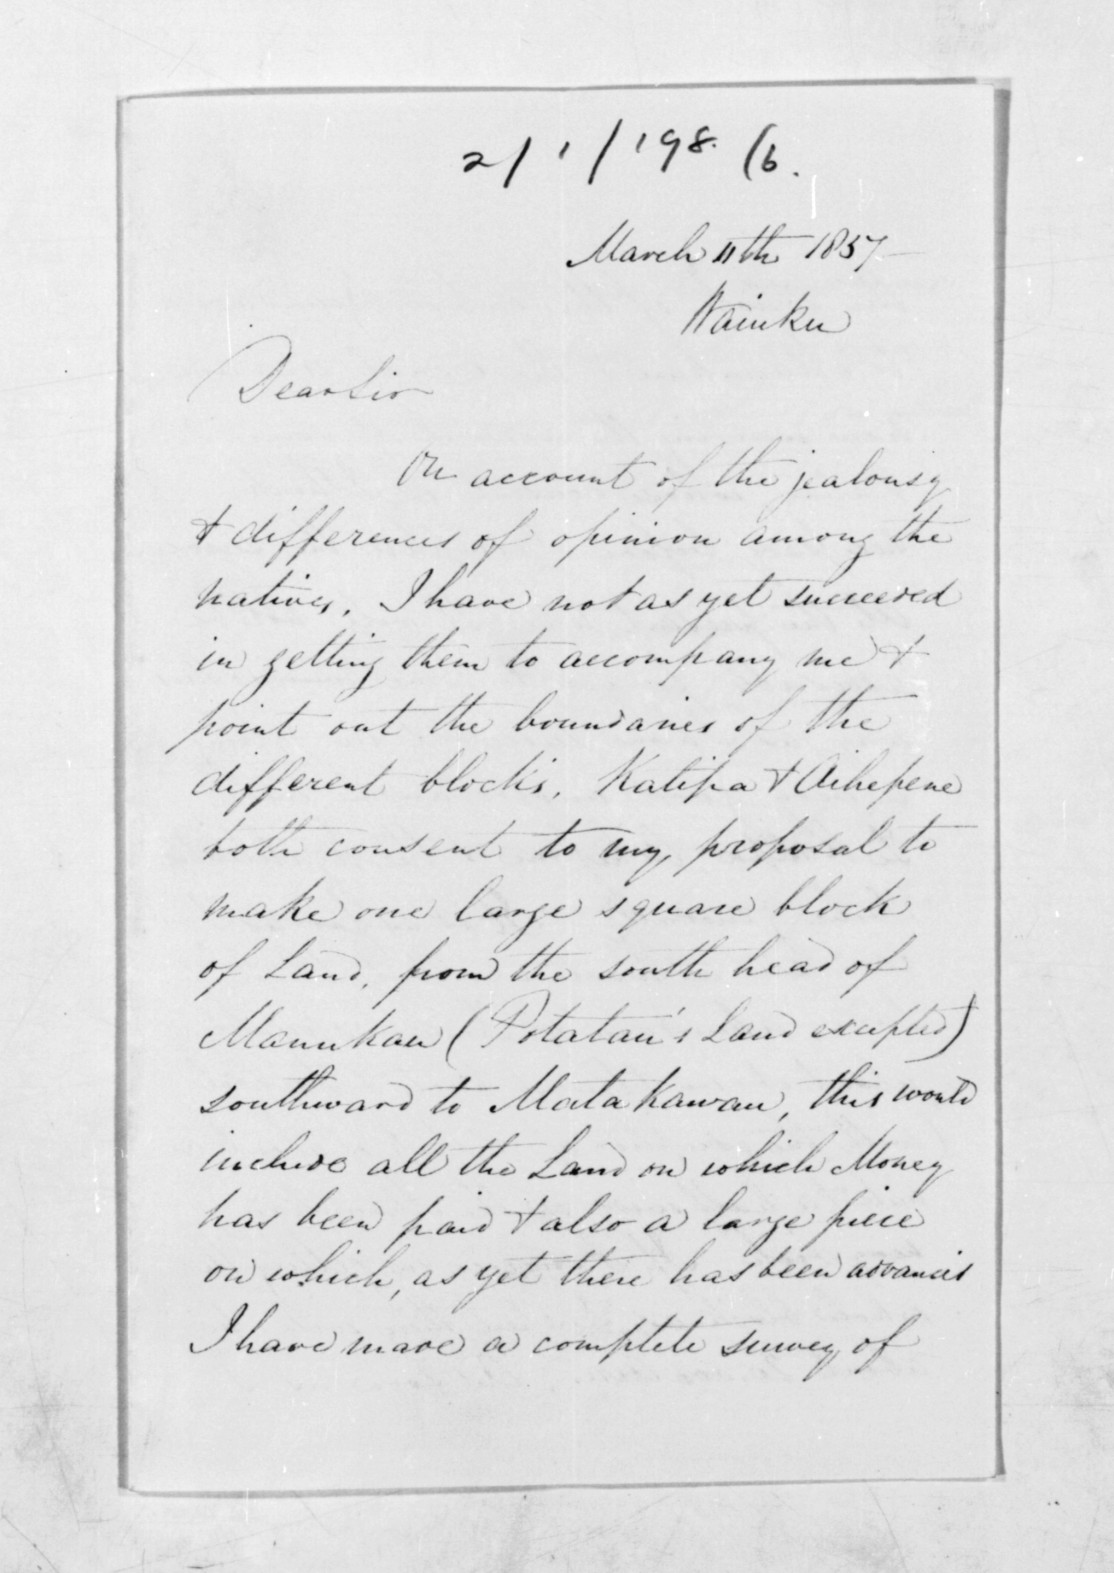 2/1/198. (6.
March 11th 1857
Waiuku
Dear Sir
On account of the jealousy
& differences of opinion among the
natives, I have not as yet succeeded
in getting them to accompany me &
point out the boundaries of the
different blocks, Katipa & Aihepene
both consent to my, proposal to
make one large square block
of Land, from the south head of
Manukau (Potatau's Land excepted)
southward to Mata Kawau, this would
include all the Land on which Money
has been paid & also a large piece
on which, as yet there has been advances
I have made a complete survey of